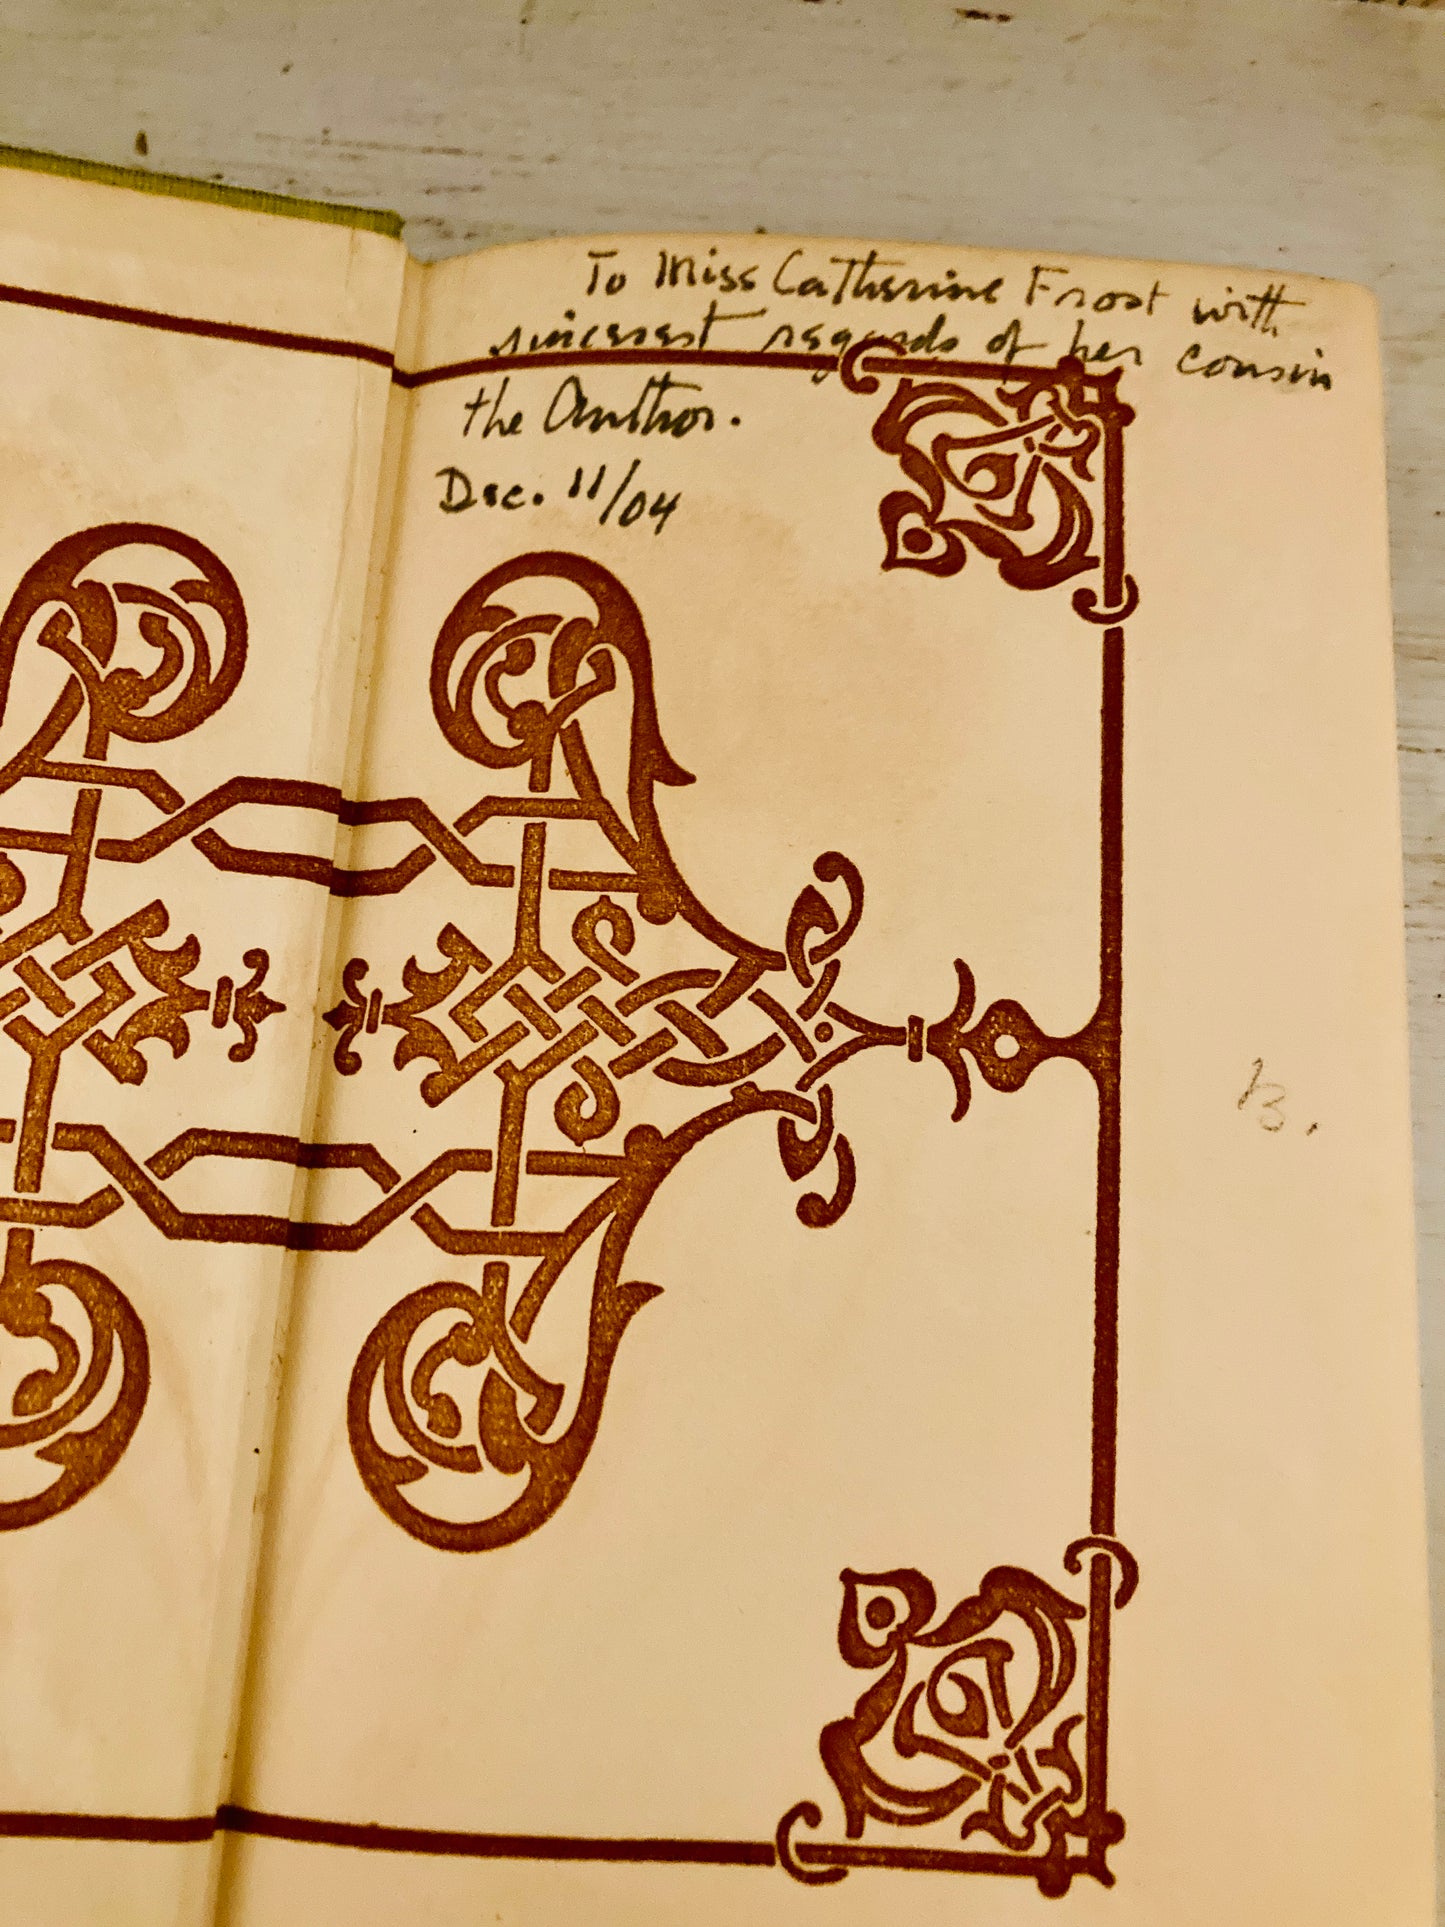 To Miss Catherine Frost with
sincerest regards of her cousin
the Author.
Dec. 11/04